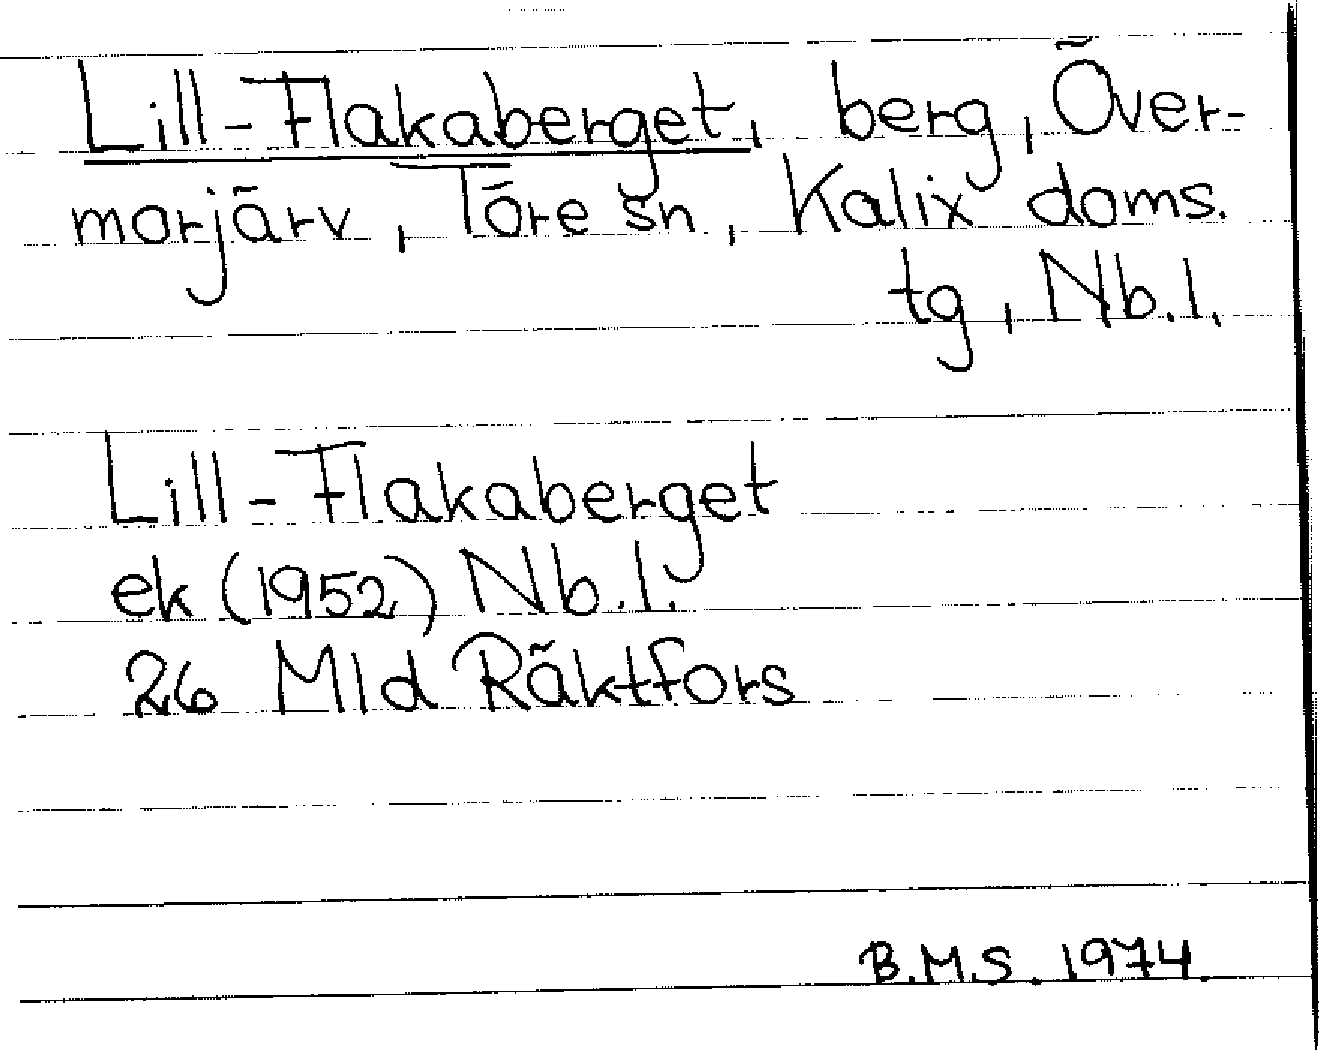 Lill-Flakaberget, berg, Över-
morjärv, Töre sn, Kalix doms.
tg, Nb.l.
Lill-Flakaberget
ek (1952) Nb.l.
26 Mld Räktfors
B.M.S. 1974.